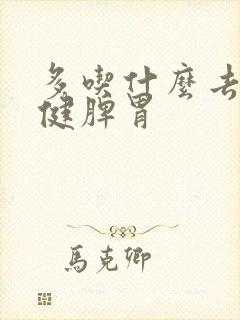 多喫什麼去
健脾胃
馬克卿